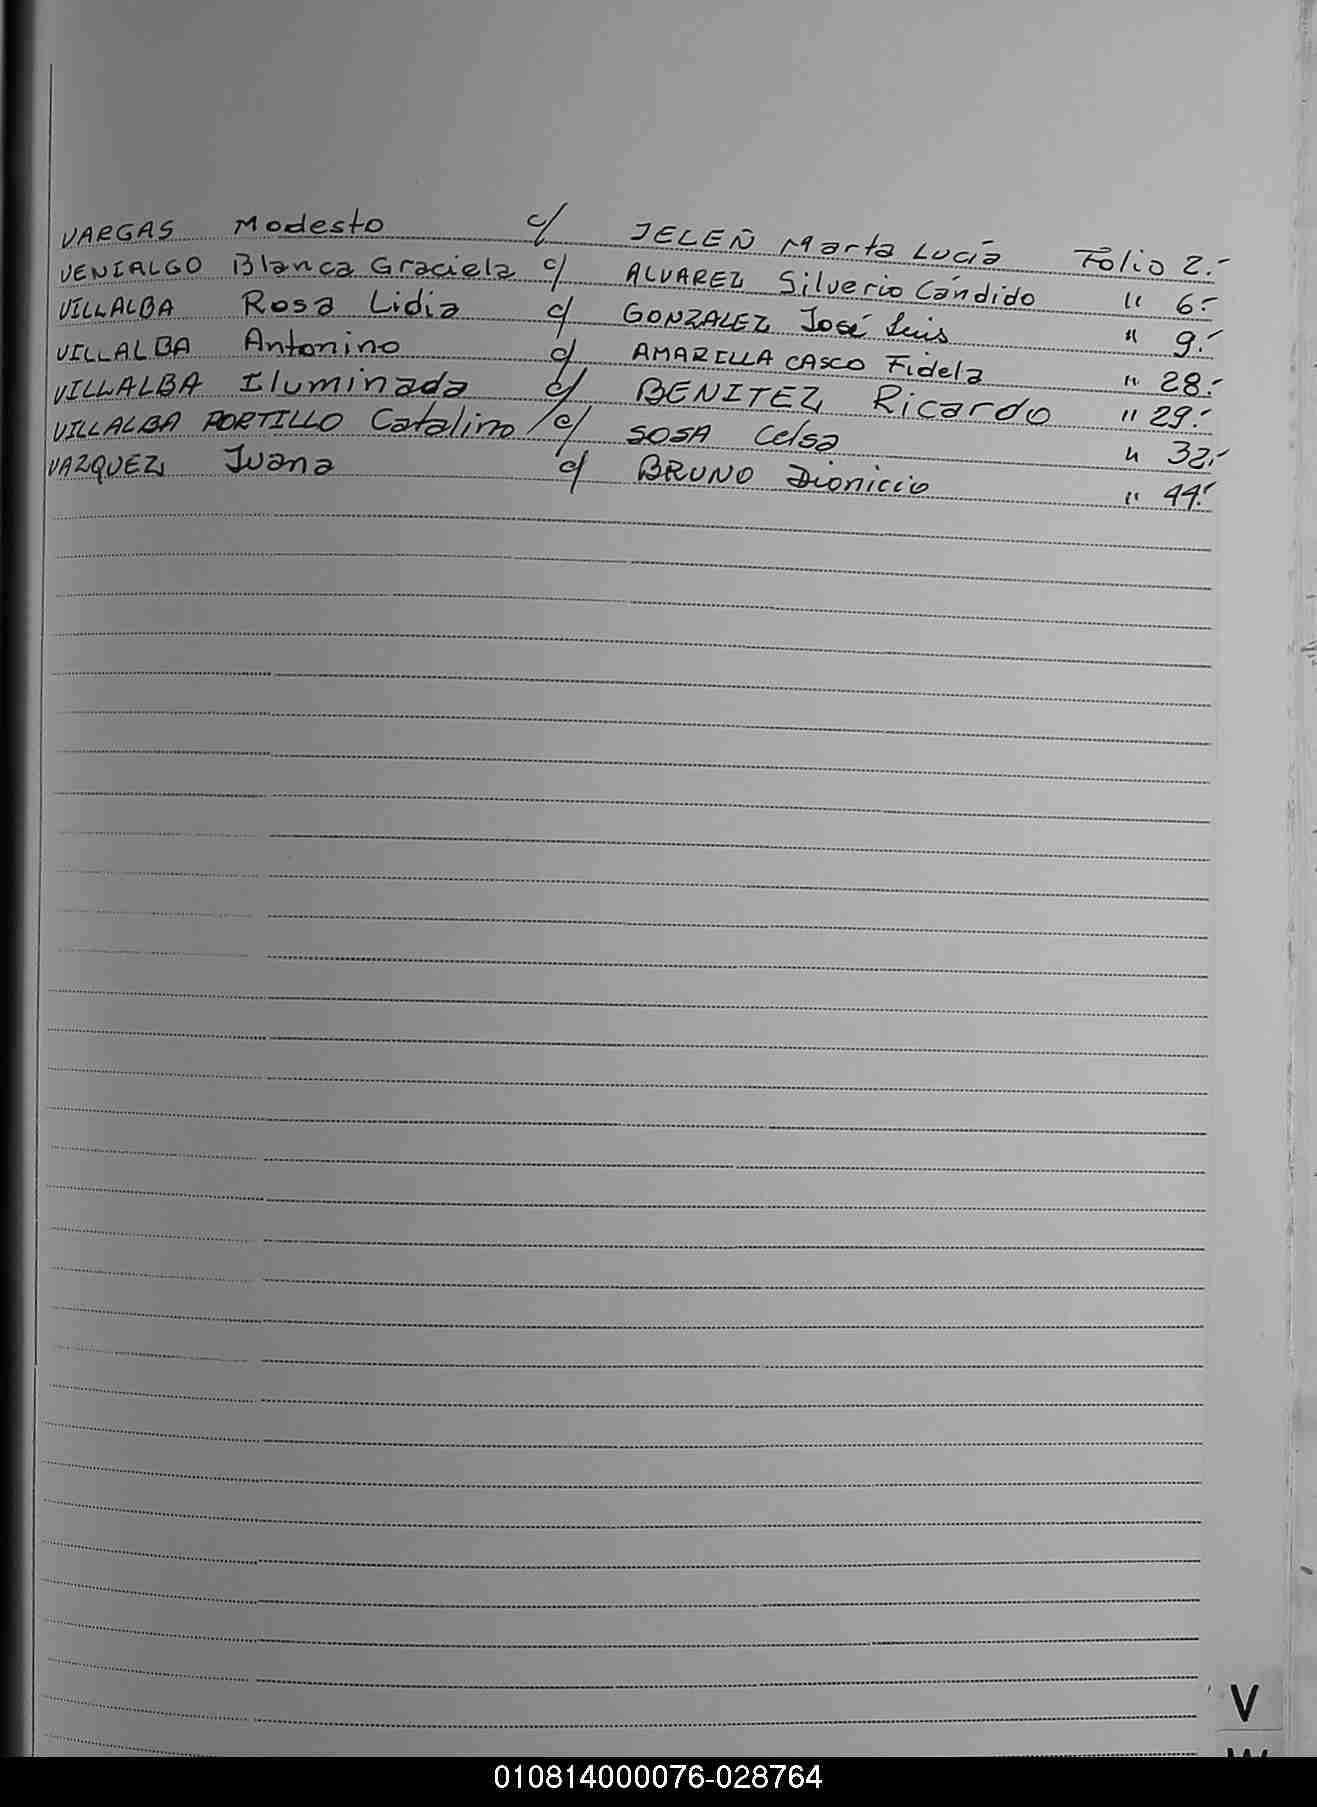 VARGAS Modesto c/ JELEÑ Marta Lucía Folio 2.-
VENIALGO Blanca Graciela c/ ALVAREZ Silverio Cándido " 6.-
VILLALBA Rosa Lidia c/ GONZALEZ José Luis " 9.-
VILLALBA Antonino c/ AMARILLA CASCO Fidela " 28.-
VILLALBA Iluminada c/ BENITEZ Ricardo " 29.-
VILLALBA PORTILLO Catalino c/ SOSA Celsa " 32.-
VAZQUEZ Juana c/ BRUNO Dionicio " 44.-
V
010814000076-028764